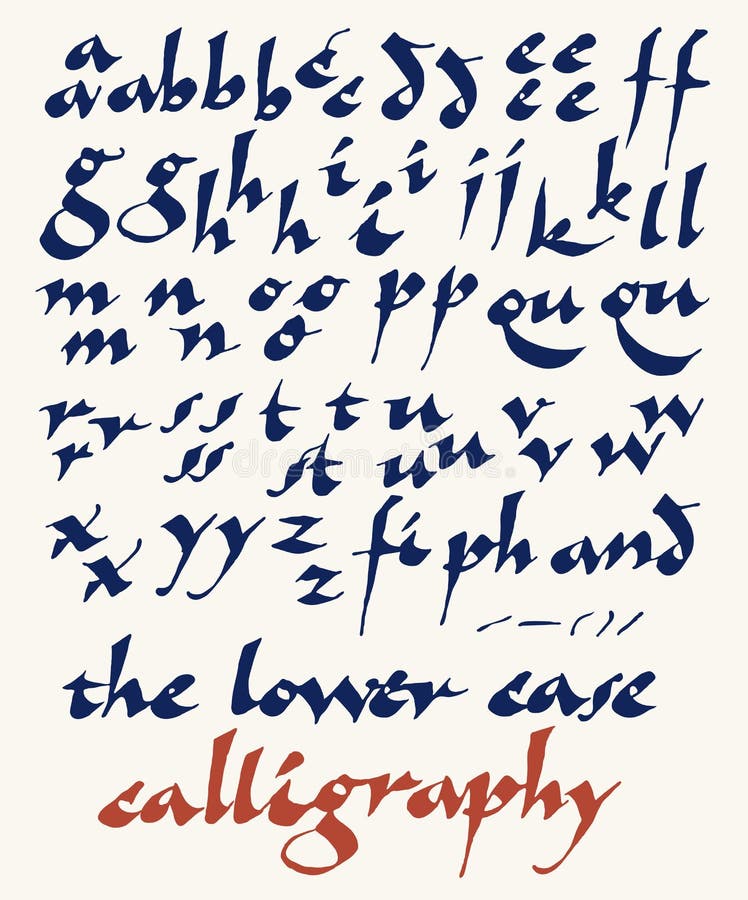 a a a b b b c c d d e e e e f f
g g h h h i i i j j k k l l
m m n n o o o p p qu qu
r r r s s ss t st t u un v v w w
x x y y z z fi ph and
- — ( ) /
the lower case
calligraphy
dreamstime